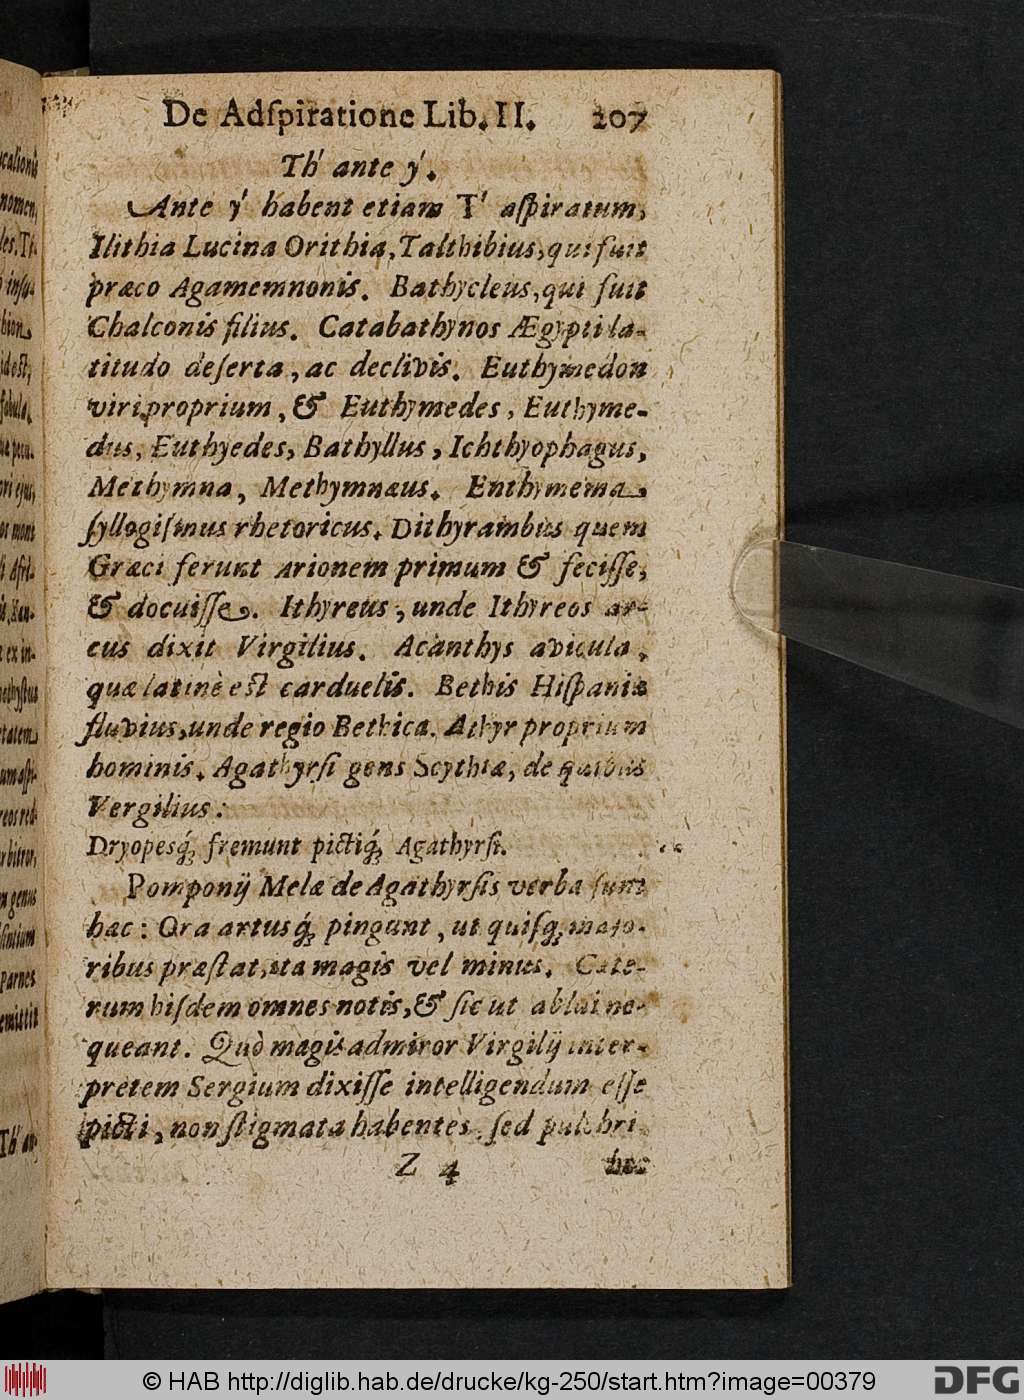 De Adſpiratione Lib. II. 207
Th' ante ẏ.
Ante ẏ habent etiam T' aſpiratum,
Ilithia Lucina Orithia, Talthibius, qui fuit
præco Agamemnonis. Bathycleus, qui fuit
Chalconis filius. Catabathynos Ægypti la-
titudo deſerta, ac declivis. Euthymedon
viri proprium, & Euthymedes, Euthyme-
dus, Euthyedes, Bathyllus, Ichthyophagus,
Methymna, Methymnæus. Enthymema
ſyllogiſmus rhetoricus. Dithyrambus quem
Græci ferunt Arionem primum & feciſſe,
& docuiſſe. Ithyreus, unde Ithyreos ar-
cus dixit Virgilius. Acanthys avicula,
quæ latinè est carduelis. Bethis Hiſpaniæ
fluvius, unde regio Bethica. Athyr proprium
hominis. Agathyrſi gens Scythiæ, de quibus
Vergilius:
Dryopesq́; fremunt pictiq́; Agathyrſi.
Pomponij Melæ de Agathyrſis verba ſunt
hæc: Ora artusq́; pingunt, ut quiſq; majo-
ribus præſtat, ita magis vel minus. Cæte-
rum hiſdem omnes notis, & ſic ut ablui ne-
queant. Quò magis admiror Virgilij inter-
pretem Sergium dixiſſe intelligendum eſſe
picti, non ſtigmata habentes, ſed pulchri
Z 4 hoc
calionis
nomen,
les. Th
fabula
ejus,
ex in-
genus
parnes
emittit
Th' an-
© HAB http://diglib.hab.de/drucke/kg-250/start.htm?image=00379
DFG